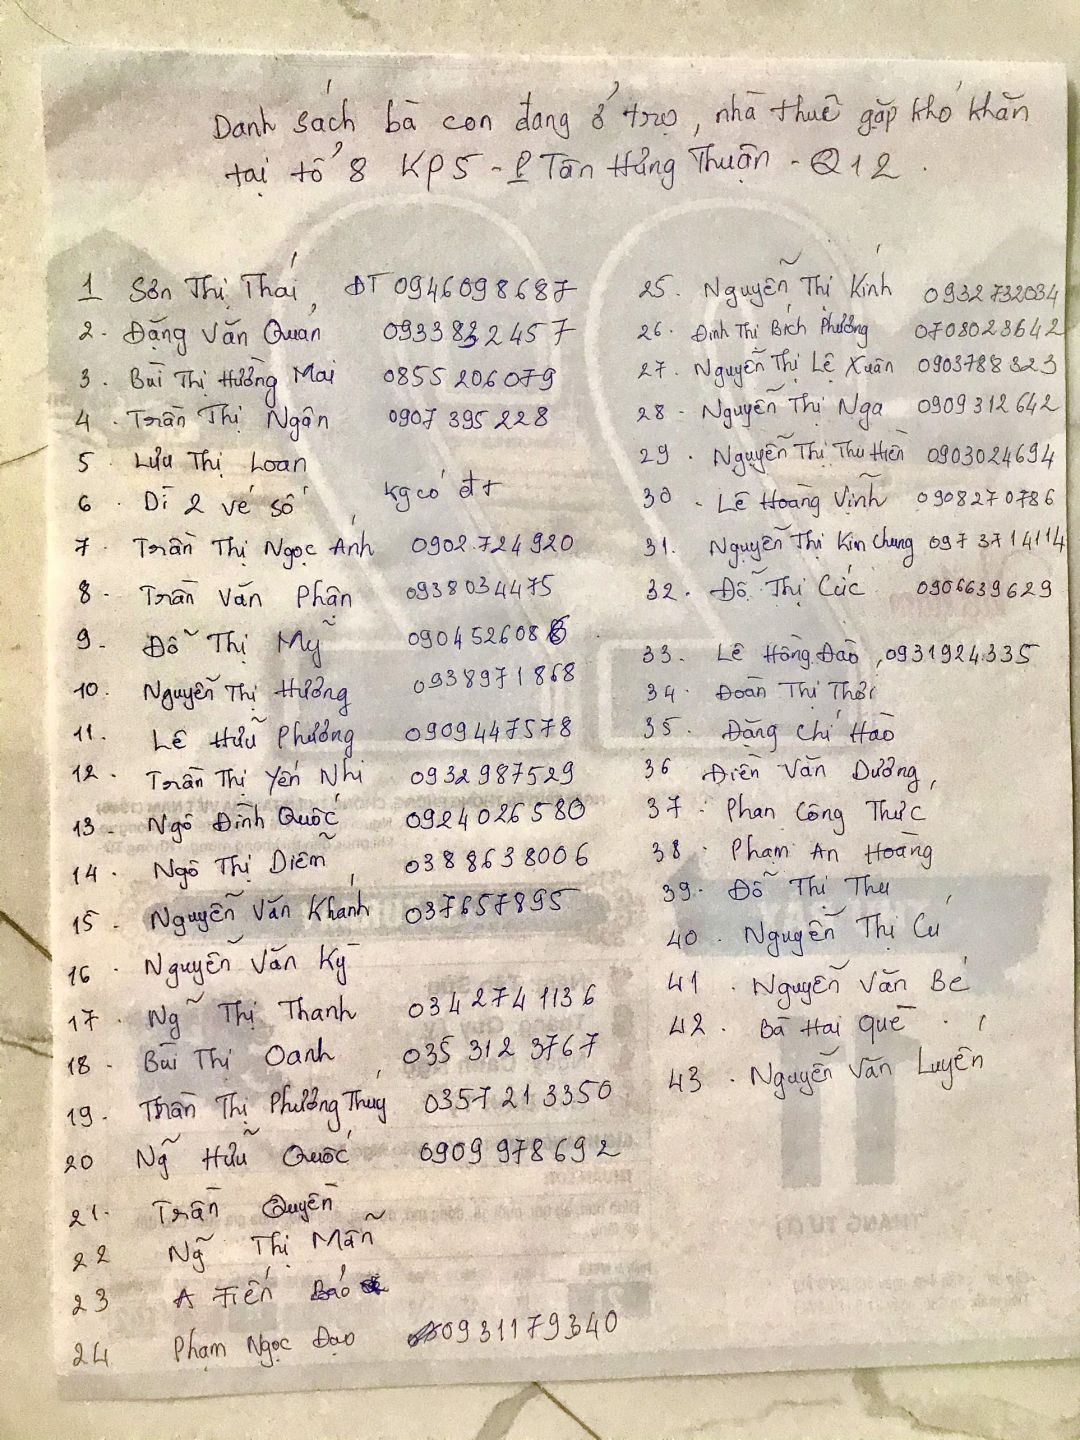 Danh sách bà con đang ở trọ, nhà thuê gặp khó khăn
tại tổ 8 KP5 - P Tân Hưng Thuận - Q12.
1 Sơn Thị Thái, ĐT 0946098687
2. Đặng Văn Quán 0933832457
3. Bùi Thị Hường Mai 0855206079
4. Trần Thị Ngân 0907 395 228
5. Lưu Thị Loan
6. Dì 2 vé số kg có đt
7. Trần Thị Ngọc Ánh 0902.724920
8. Trần Văn Phận 0938034475
9. Đỗ Thị Mỹ 0904526086
10. Nguyễn Thị Hương 0938971868
11. Lê Hữu Phương 0909447578
12. Trần Thị Yến Nhi 0932987529
13. Ngô Đình Quốc 0924026580
14. Ngô Thị Diễm 0388638006
15. Nguyễn Văn Khánh 037657895
16. Nguyễn Văn Kỳ
17. Ng~ Thị Thanh 034 274 1136
18. Bùi Thị Oanh 035 312 3767
19. Trần Thị Phương Thúy 0357 213350
20 Ng~ Hữu Quốc 0909 978692
21. Trần Quyền
22 Ng~ Thị Mẫn
23 A Tiến Bảo
24 Phạm Ngọc Đạo 0931179340
25. Nguyễn Thị Kính 0932732034
26. Đinh Thị Bích Phượng 0708023642
27. Nguyễn Thị Lệ Xuân 0903788323
28. Nguyễn Thị Nga 0909312642
29. Nguyễn Thị Thu Hiền 0903024694
30. Lê Hoàng Vinh 0908270786
31. Nguyễn Thị Kim Chung 0973714114
32. Đỗ Thị Cúc 0906639629
33. Lê Hồng Đào, 0931924335
34. Đoàn Thị Thới
35. Đặng Chí Hào
36 Điền Văn Dương,
37. Phan Công Thức
38. Phạm An Hoàng
39. Đỗ Thị Thu
40. Nguyễn Thị Cú
41. Nguyễn Văn Bé
42. Bà Hai Quê
43. Nguyễn Văn Luyến